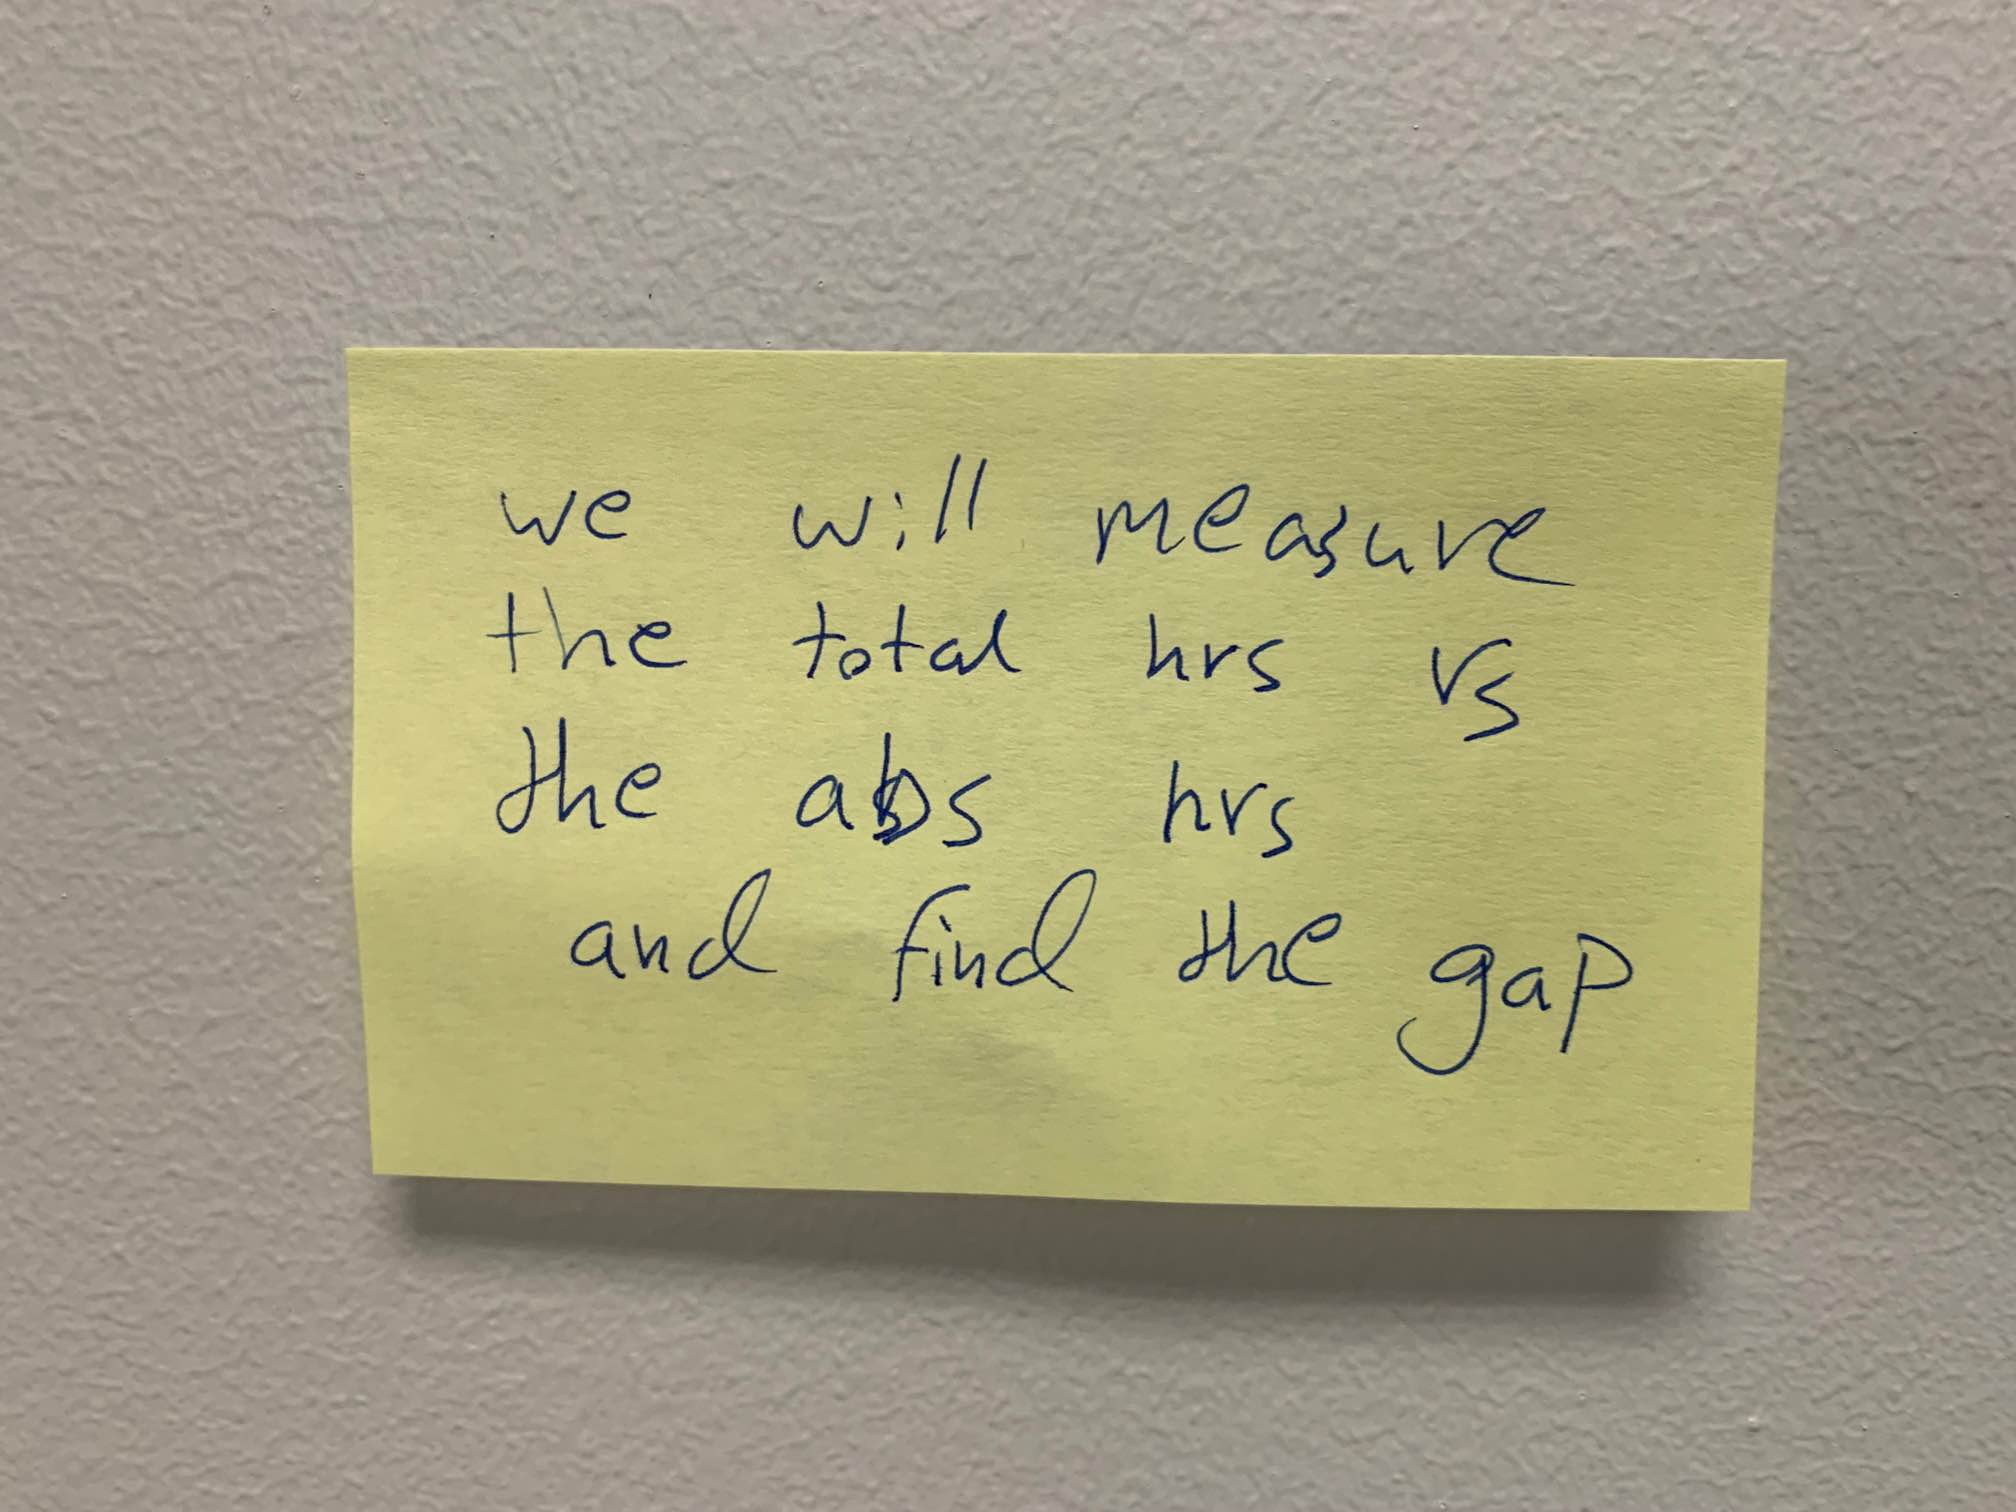 we will measure
the total hrs vs
the abs hrs
and find the gap